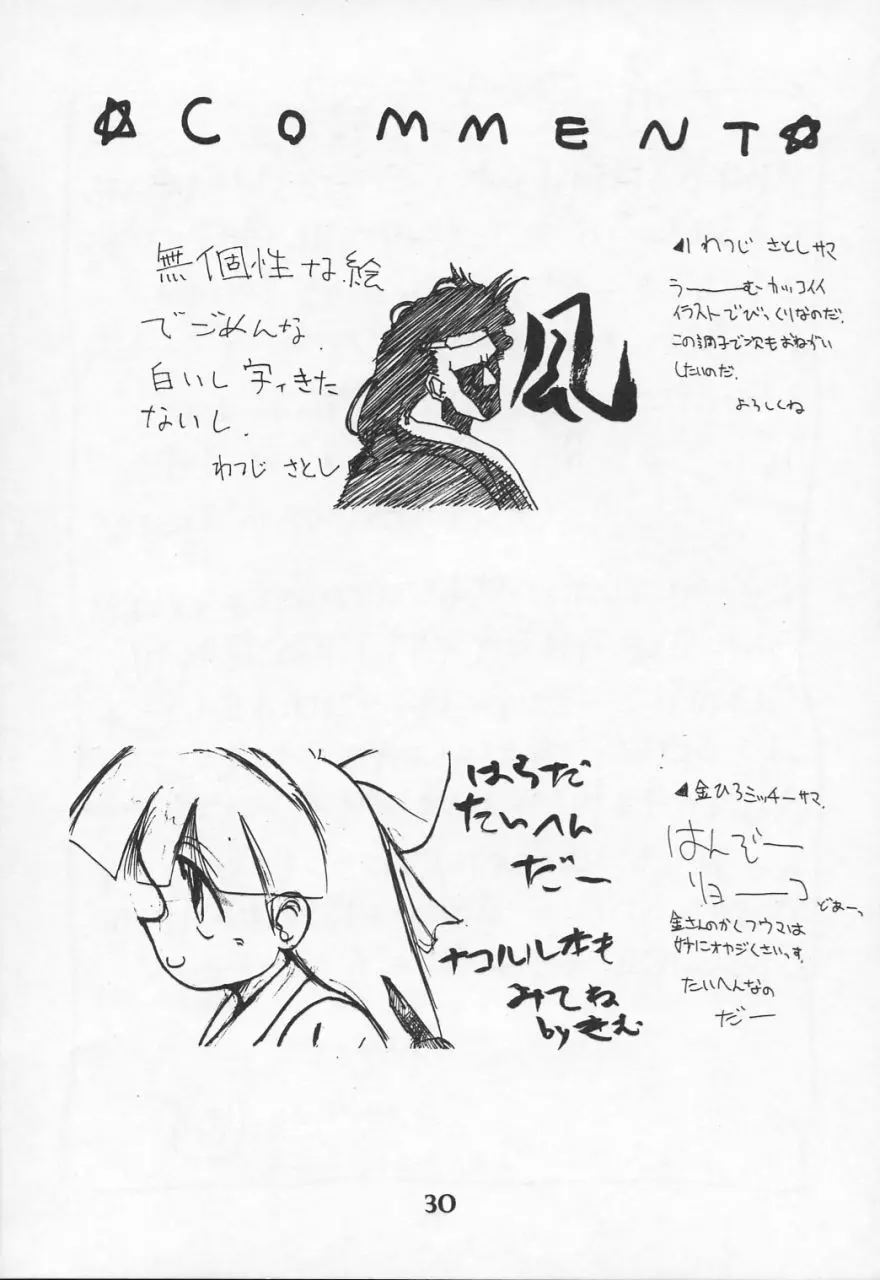 ☆COMMENT☆
無個性な絵
でごめんな.
白いし 字ィきた
ないし.
わつじ さとし
凧
◀わつじ さとしサマ
うーーむ カッコイイ
イラストでびっくりなのだ.
この調子で次もおねがい
したいのだ.
よろしくね
はらだ
たいへん
だー
ナコルル本も
みてね
byきむ
◀金ひろミッチーサマ.
はんぞー
リョーコ
どあーっ
金さんのかくフウマは
妙にオヤジくさいっす.
たいへんなの
だー
30